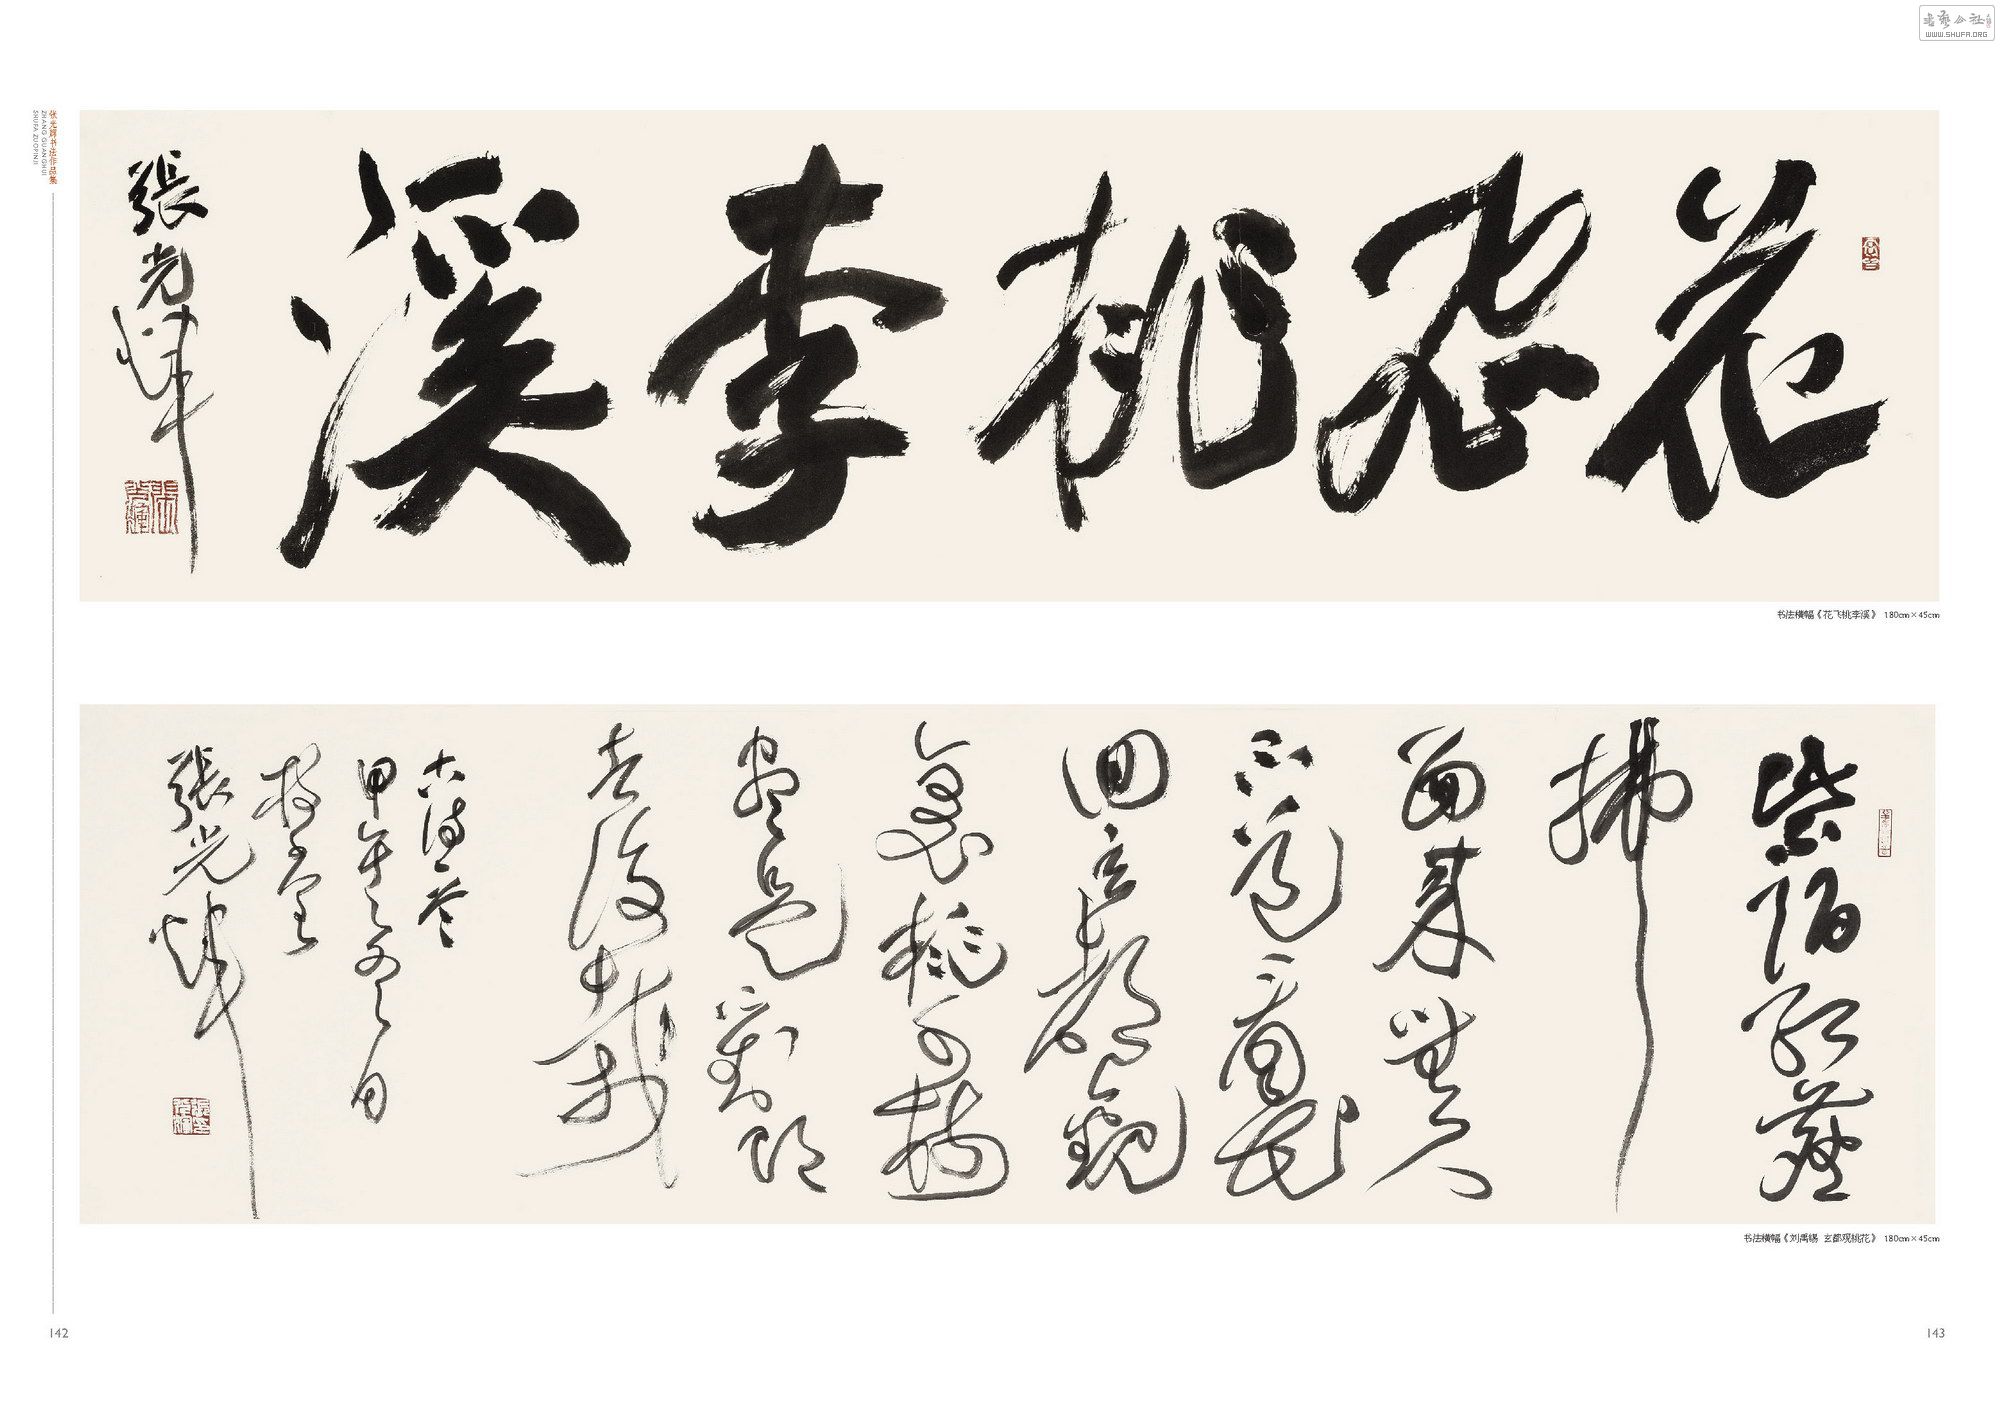 書藝公社
WWW.SHUFA.ORG
张光辉书法作品集
ZHANG GUANGHUI
SHUFA ZUOPINJI
花飛桃李溪
張光煇
书法横幅《花飞桃李溪》 180cm×45cm
紫陌紅塵
拂
面来無人
不道看花
回玄都觀
裏桃千樹
盡是劉郎
去後栽
古詩一首
甲午之夏月
張光煇
书法横幅《刘禹锡 玄都观桃花》 180cm×45cm
142
143